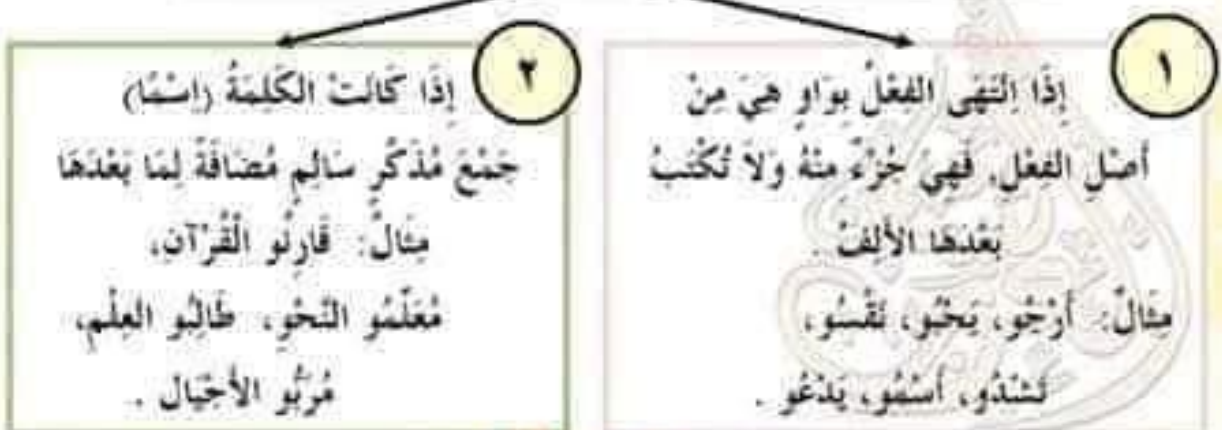 ١
إِذَا اِنْتَهَى الفِعْلُ بِوَاوٍ هِيَ مِنْ
أَصْلِ الفِعْلِ، فَهِيَ جُزْءٌ مِنْهُ وَلاَ تُكْتَبُ
بَعْدَهَا الأَلِفُ .
مِثَالٌ: أَرْجُو، يَحْبُو، تَقْسُو،
تَشْدُو، أَسْمُو، يَدْعُو .
٢
إِذَا كَانَتْ الكَلِمَةُ (اِسْمًا)
جَمْعَ مُذَكَّرٍ سَالِمٍ مُضَافَةً لِمَا بَعْدَهَا
مِثَالٌ: قَارِئُو الْقُرْآنِ،
مُعَلِّمُو النَّحْوِ، طَالِبُو العِلْمِ،
مُرَبُّو الأَجْيَالِ .